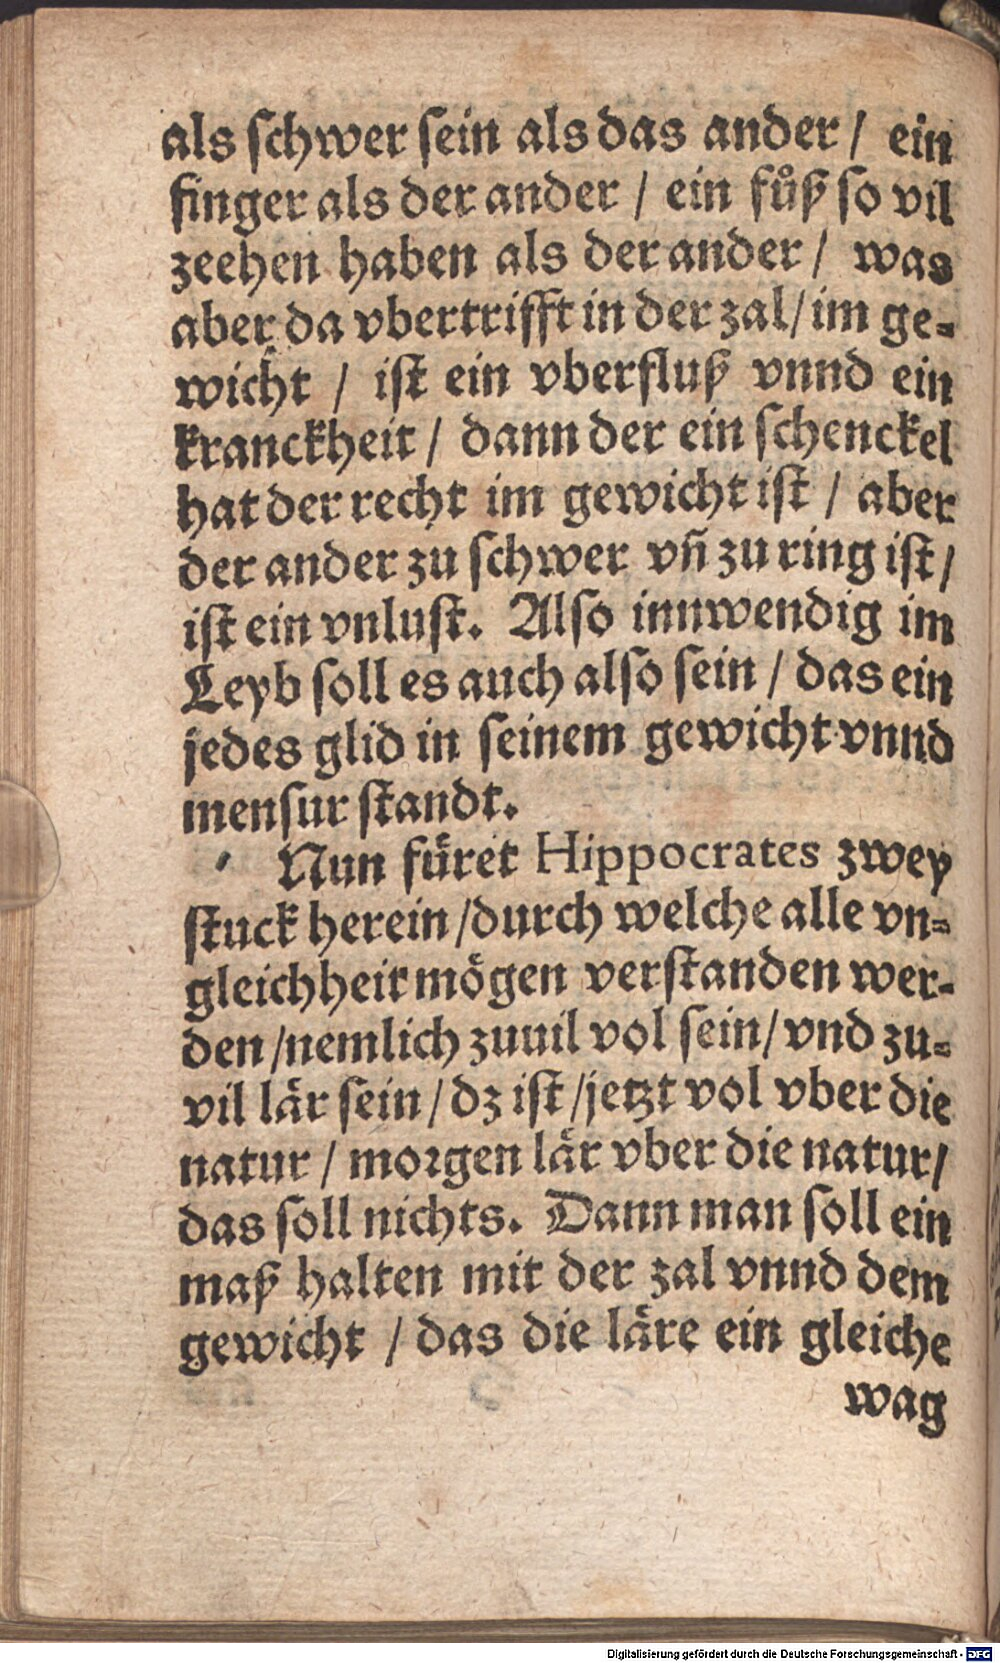 als schwer sein als das ander / ein
finger als der ander / ein fůß so vil
zeehen haben als der ander / was
aber da vbertrifft in der zal / im ge-
wicht / ist ein vberfluß vnnd ein
kranckheit / dann der ein schenckel
hat der recht im gewicht ist / aber
der ander zu schwer vñ zu ring ist /
ist ein vnlust. Also innwendig im
Leyb soll es auch also sein / das ein
jedes glid in seinem gewicht vnnd
mensur standt.
Nun füret Hippocrates zwey
stuck herein / durch welche alle vn-
gleichheit mögen verstanden wer-
den / nemlich zuuil vol sein / vnd zu-
vil lär sein / dz ist / jetzt vol vber die
natur / morgen lär vber die natur /
das soll nichts. Dann man soll ein
maß halten mit der zal vnnd dem
gewicht / das die läre ein gleiche
wag
Digitalisierung gefördert durch die Deutsche Forschungsgemeinschaft - DFG